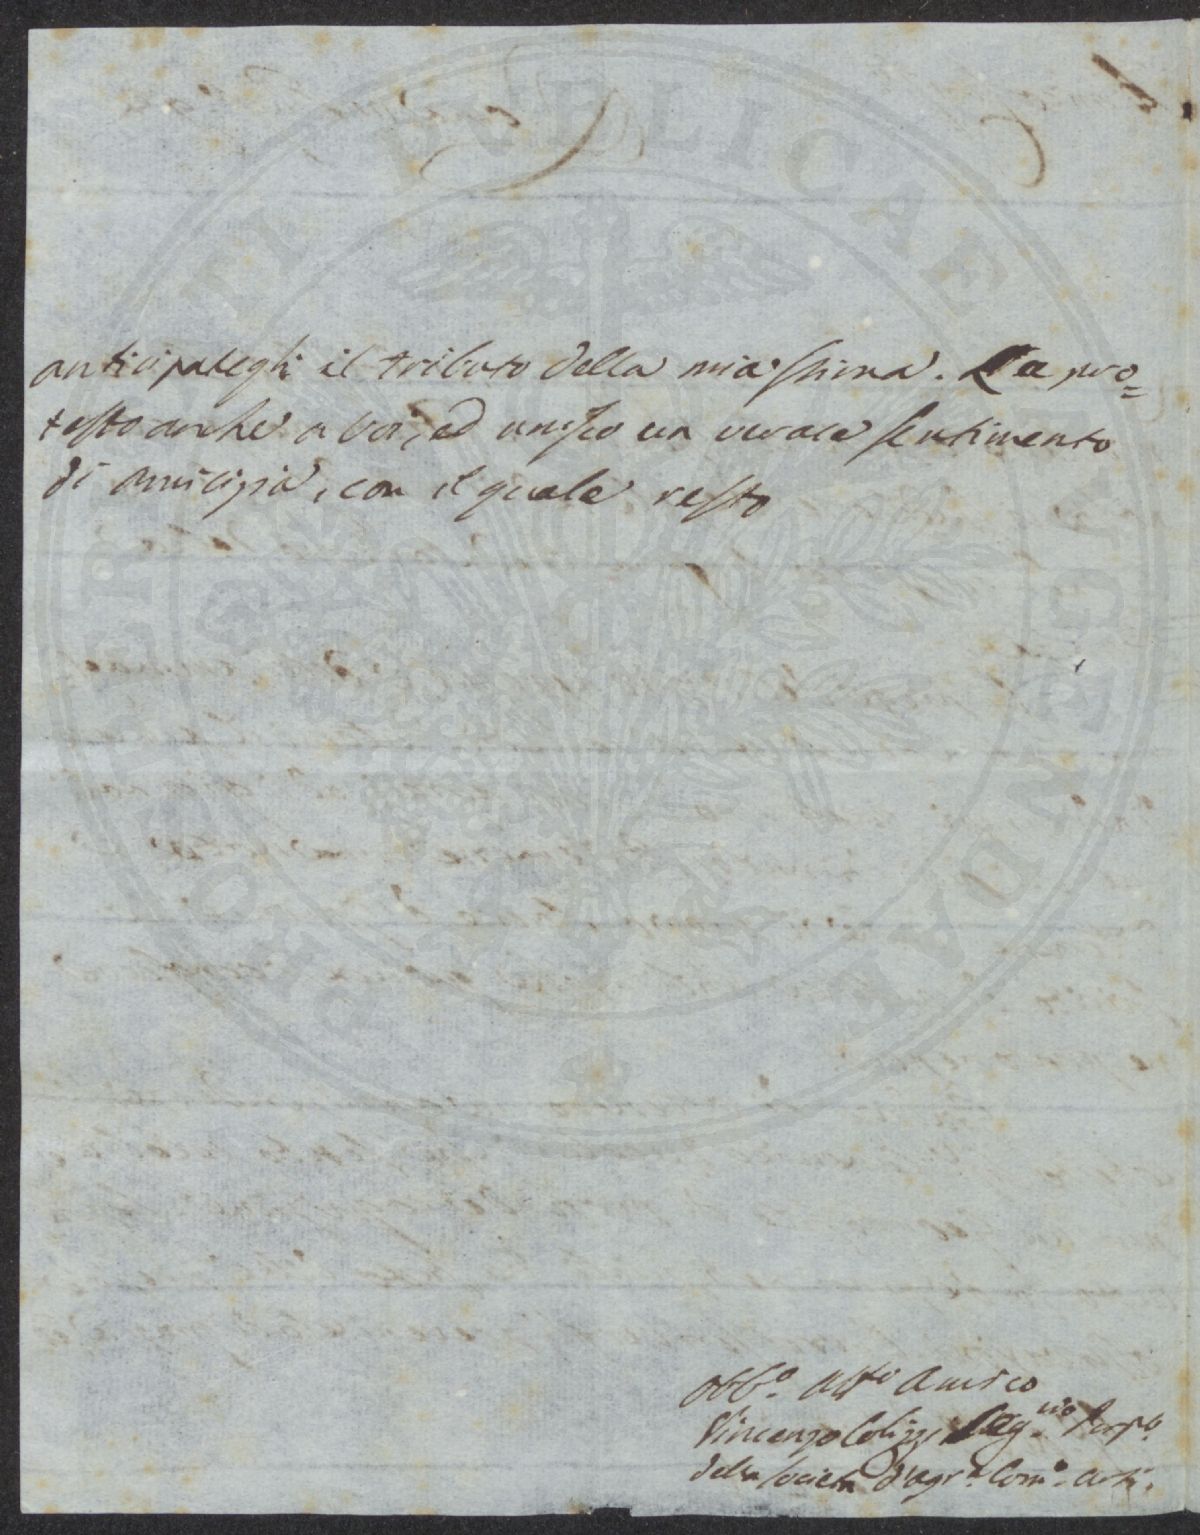 anticipategli il tributo della mia stima. La pro=
testo anche a voi, ed unisco un verace sentimento
di amicizia, con il quale resto
Obb.o Aff.o Amico
Vincenzo Colizzi Seg.rio Perp.o
della Società d'agr.a Com.o Arti.